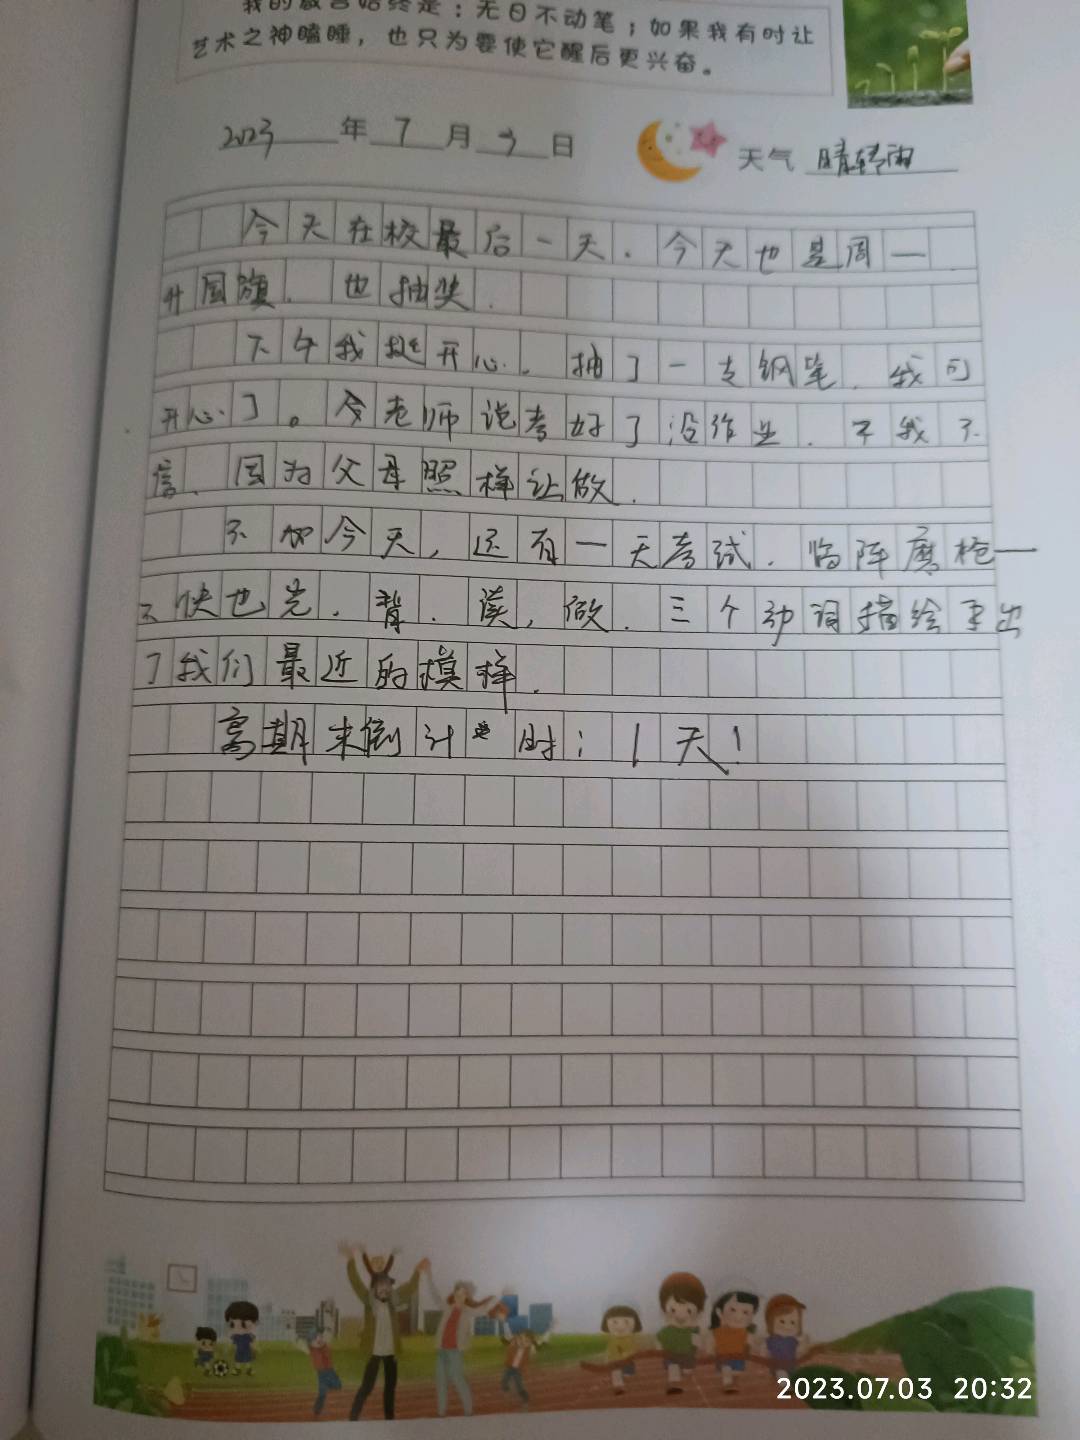 我的感言始终是：无日不动笔；如果我有时让
艺术之神瞌睡，也只为要使它醒后更兴奋。
2023年7月3日 天气 晴转雨
今天在校最后一天.今天也是周一
升国旗.也抽奖.
下午我挺开心.抽了一支钢笔.我可
开心了。今老师说考好了没作业.不我不
信.因为父母照样让做.
不如今天,还有一天考试.临阵磨枪一
不快也光.背.读,做.三个动词描绘出
了我们最近的模样.
离期末倒计时:1天!
2023.07.03 20:32